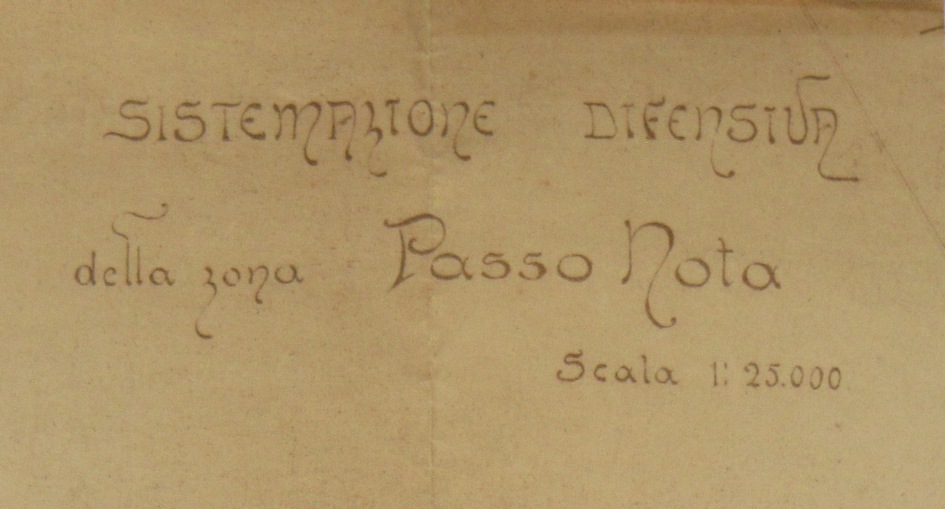 SISTEMAZIONE DIFENSIVA
della zona Passo Nota
Scala 1:25.000